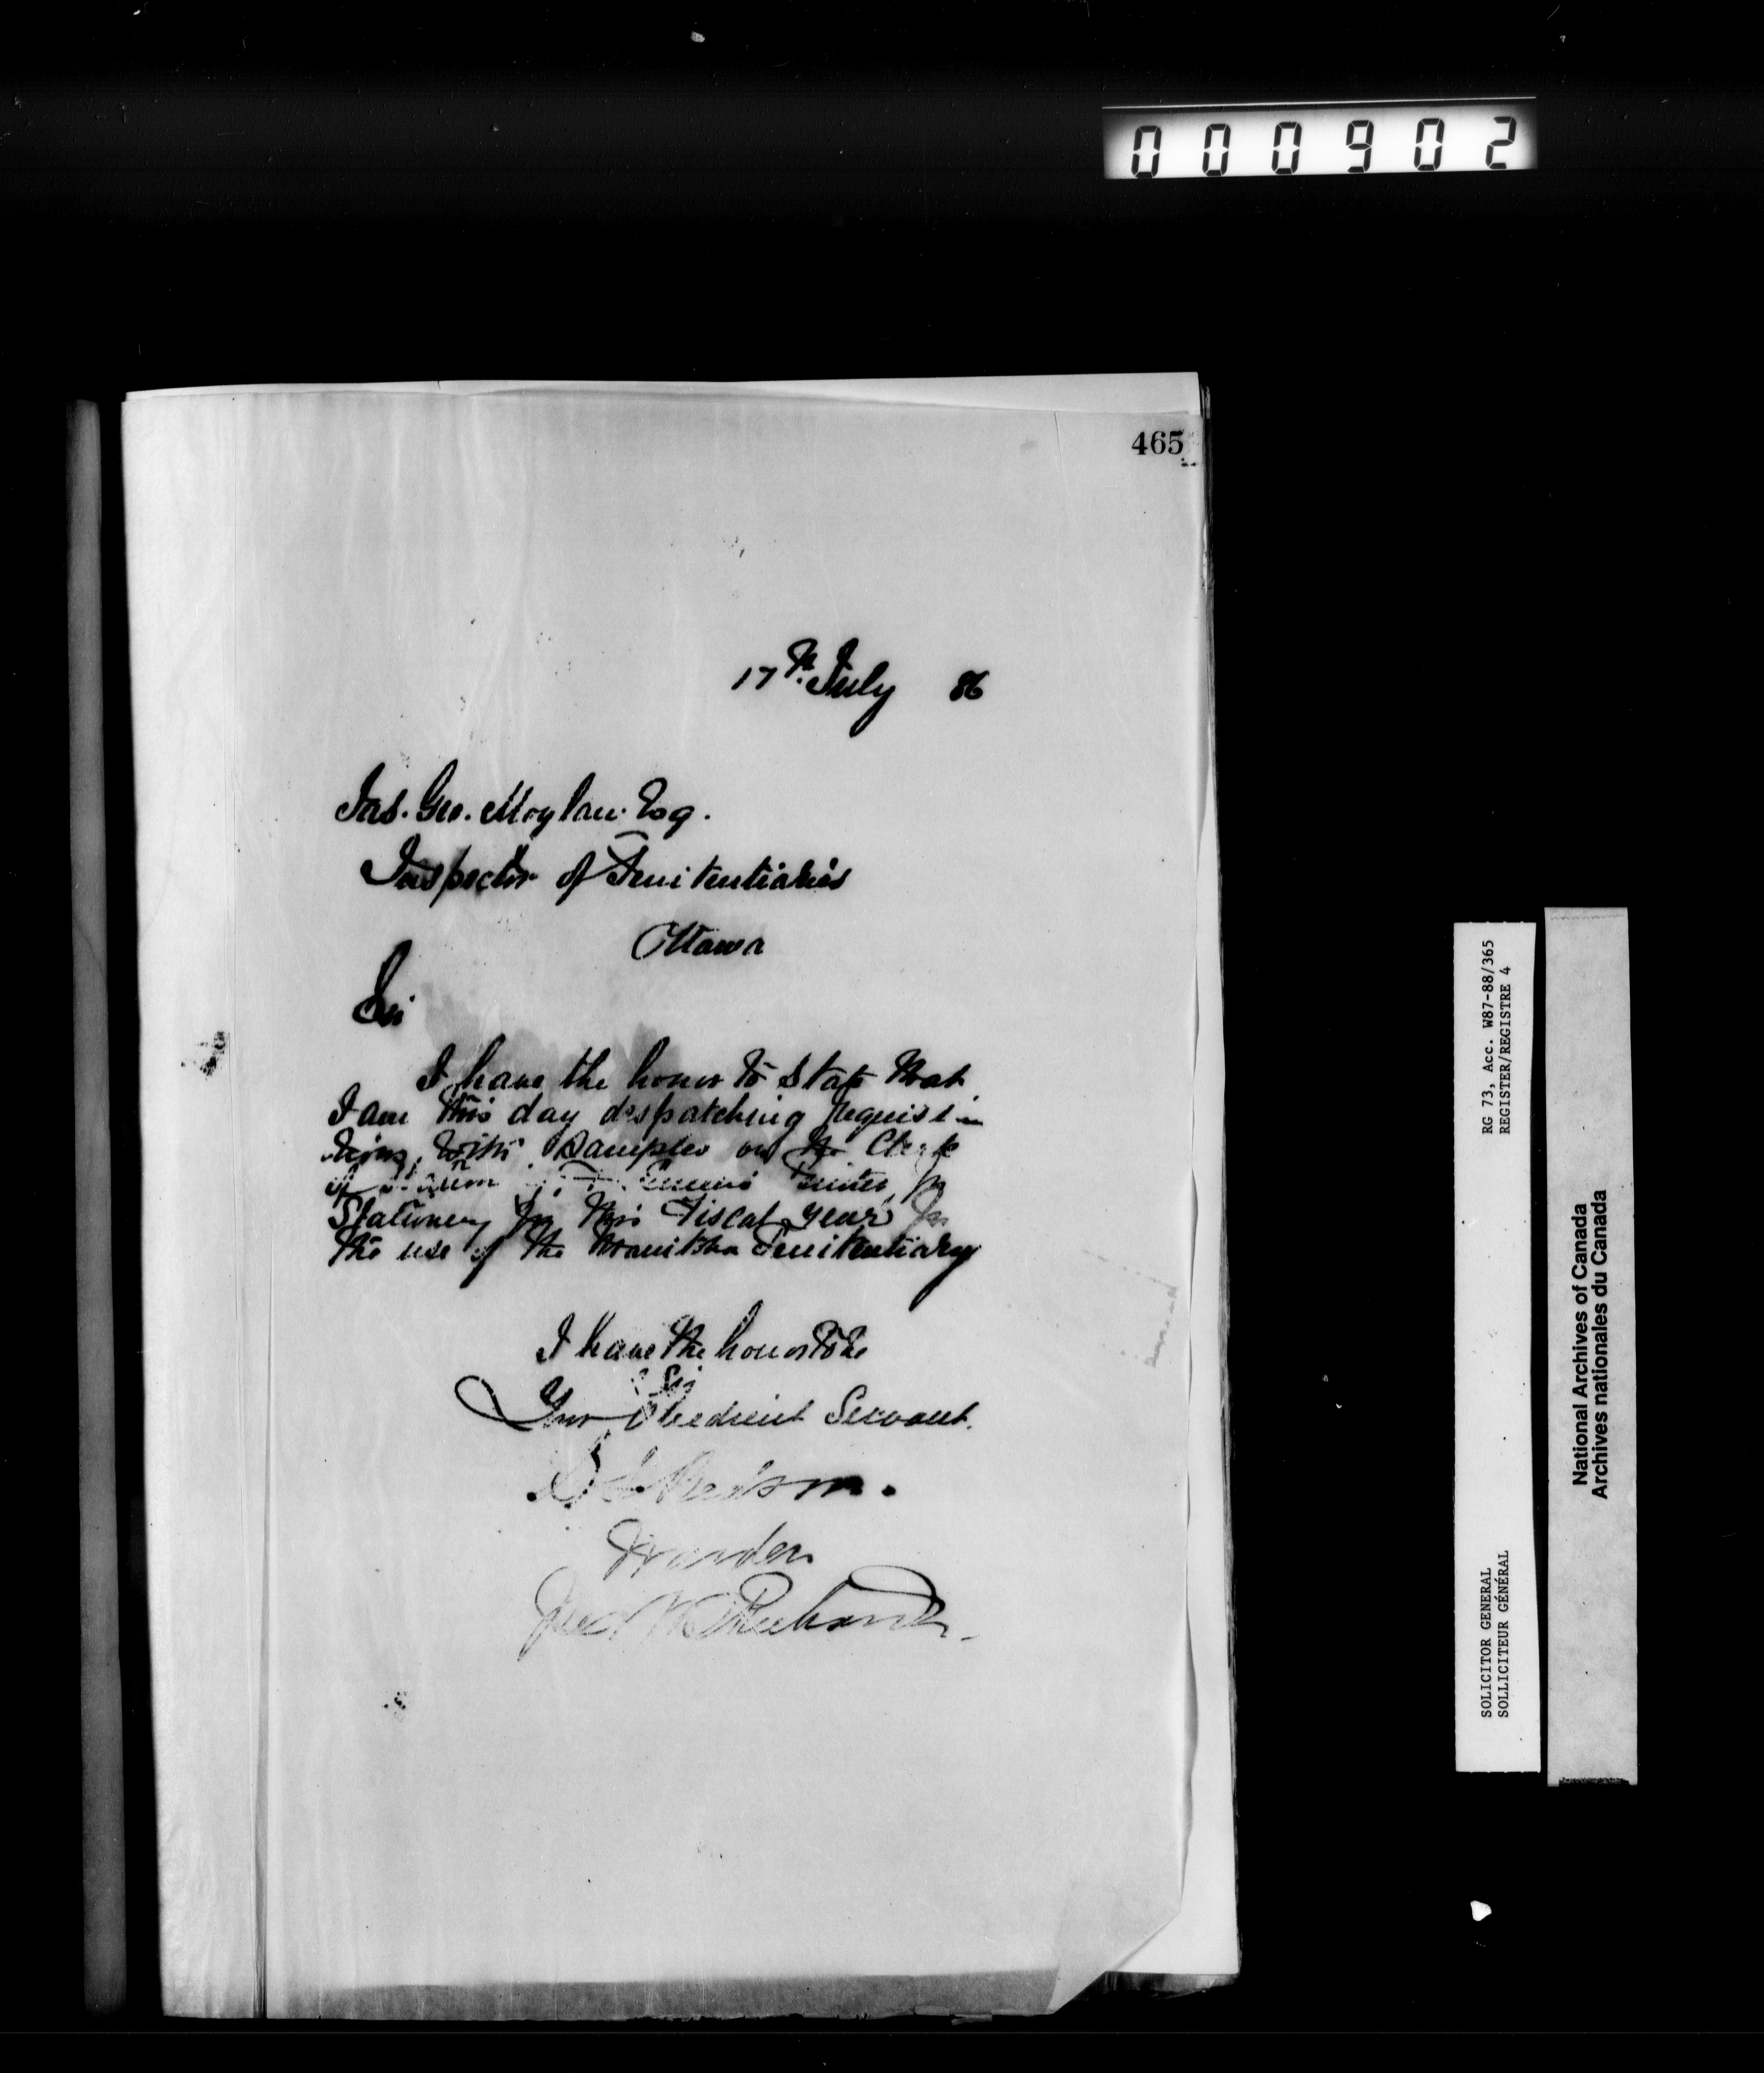 000902
465
17th July 86
Jas. Geo. Moylan. Esq.
Inspector of Penitentiaries
Ottawa
Sir
I have the honor to state that
I am this day despatching requisi
tions, with Samples on the Clerk
of Printer, for
Stationery for this Fiscal year for
the use of the Manitoba Penitentiary
I have the honor to be
Sir
Your Obedient Servant.
S L Bedson.
Warden
RG 73, Acc. W87-88/365
REGISTER/REGISTRE 4
SOLICITOR GENERAL
SOLLICITEUR GÉNÉRAL
National Archives of Canada
Archives nationales du Canada